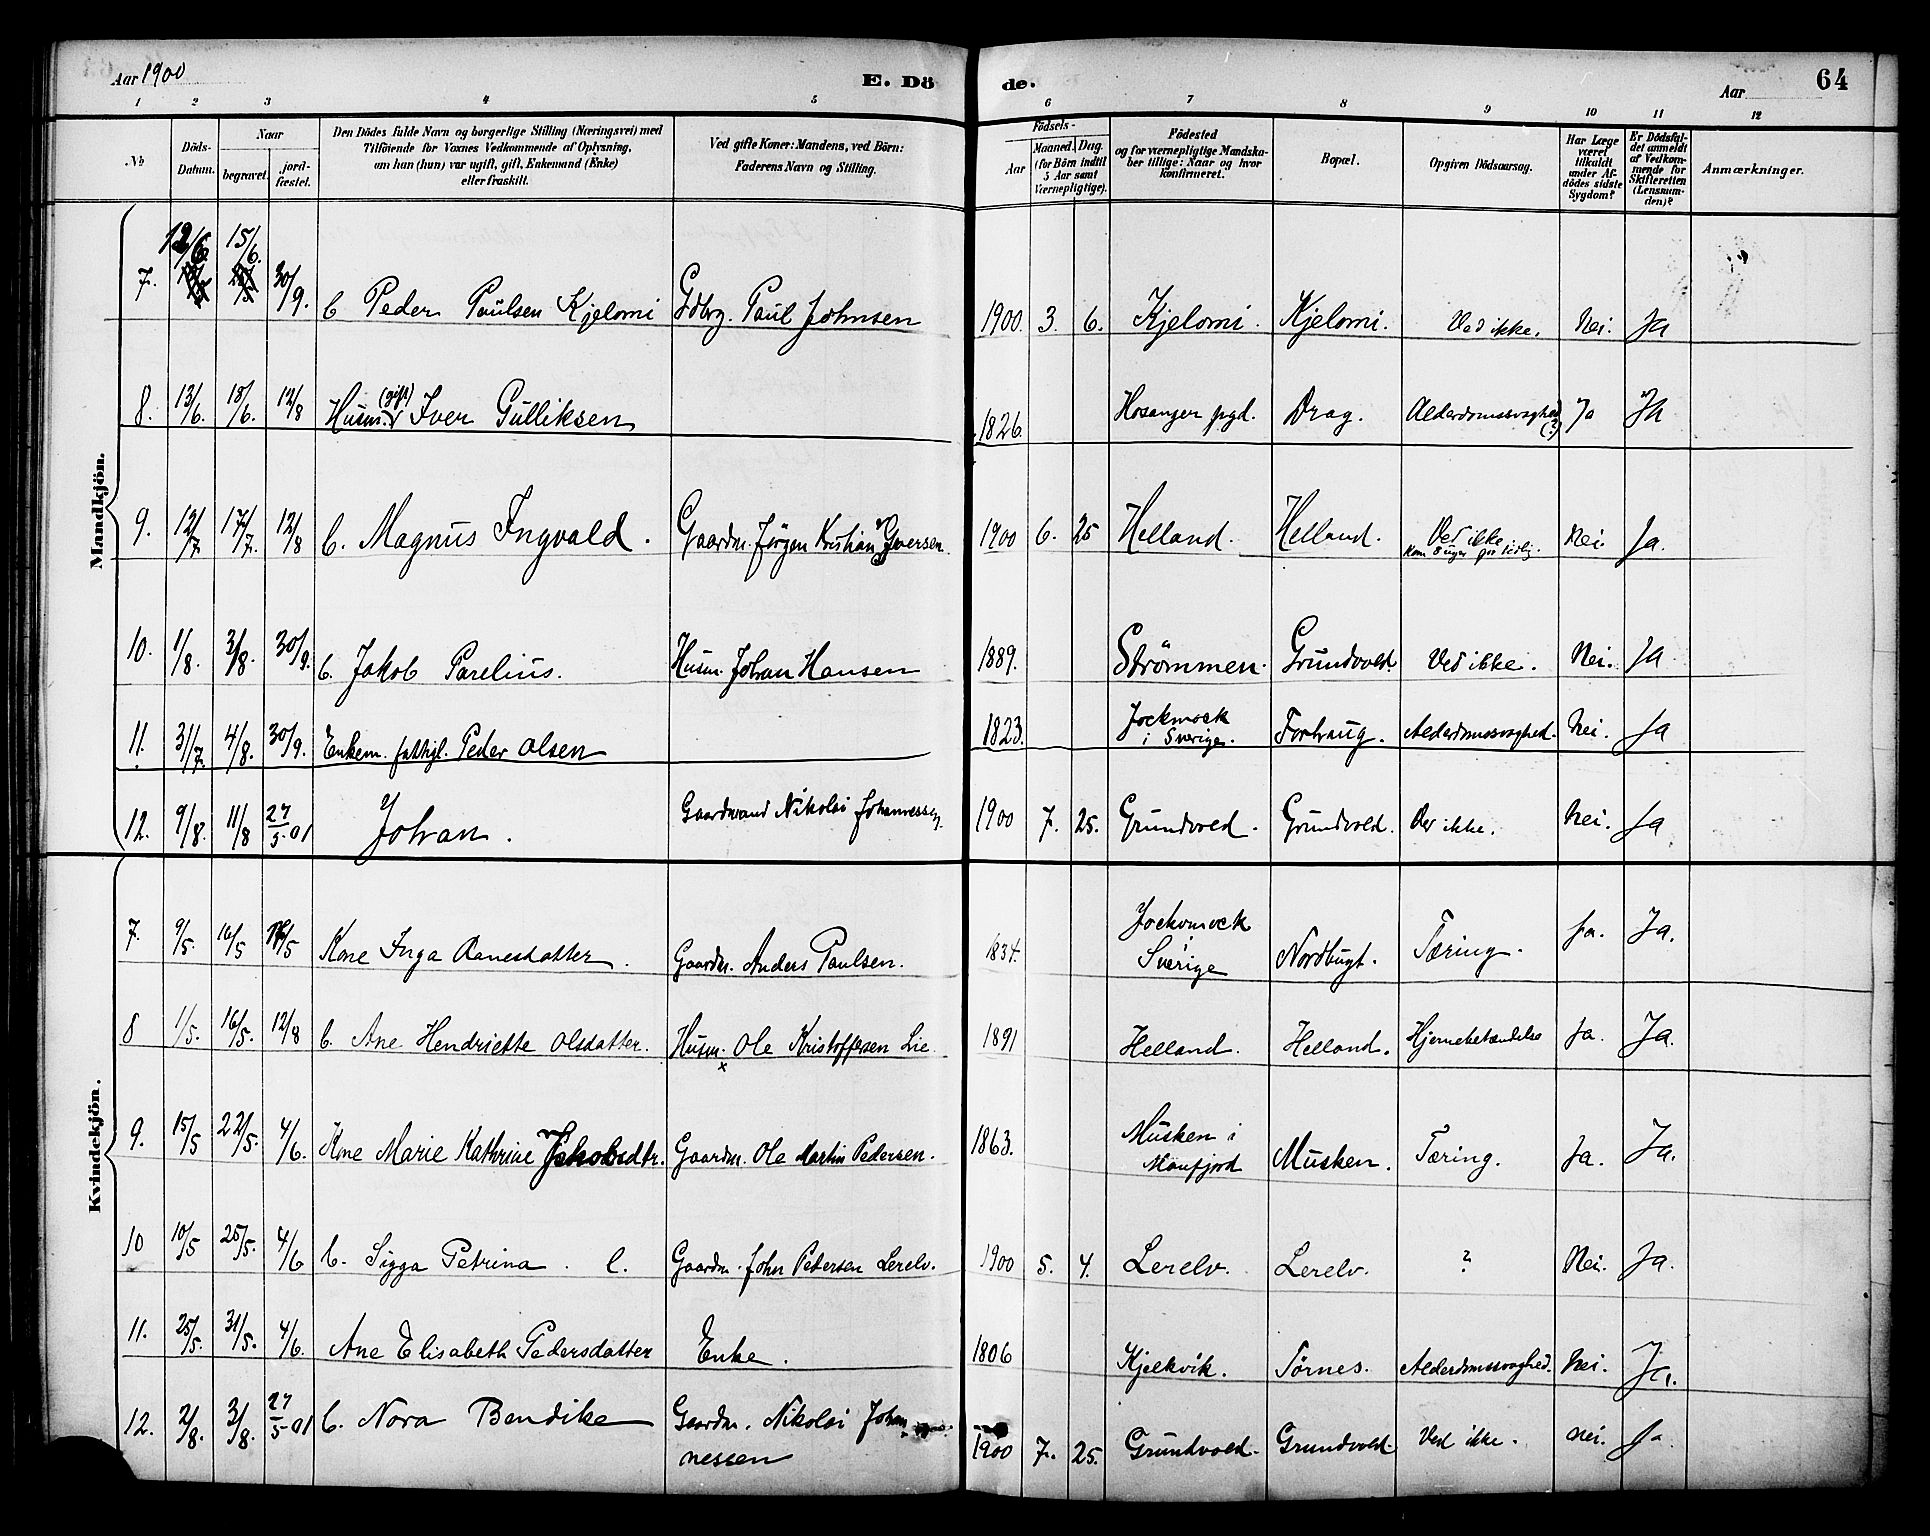 Aar 1900 E. Dö de. Aar 64
1 2 3 4 5 6 7 8 9 10 11 12
No
Döds-Datum.
Naar
begravet.
jordfæstet.
Den Dödes fulde Navn og borgerlige Stilling (Næringsvei) med
Tilföiende for Voxnes Vedkommende af Oplysning,
om han (hun) var ugift, gift, Enkemand (Enke)
eller fraskilt.
Ved gifte Koner: Mandens, ved Börn:
Faderens Navn og Stilling.
Födsels-
Aar
Maaned. Dag.
(for Börn indtil
5 Aar samt
Værnepligtige).
Födested
og for værnepligtige Mandska-
ber tillige: Naar og hvor
konfirmeret.
Bopæl.
Opgiven Dödsaarsag.
Har Læge
været
tilkaldt
under Af-
dödes sidste
Sygdom?
Er Dödsfal-
det anmeldt
af Vedkom-
mende for
Skifteretten
(Lensman-
den)?
Anmærkninger.
Mandkjön.
7. 12/6 15/6. 30/9. b Peder Paulsen Kjelomi Gdbrg. Paul Johnsen 1900. 3. 6. Kjelomi. Kjelomi. Ved ikke. Nei. Ja
8. 13/6. 18/6. 12/8 Husm. (gift) Iver Gulliksen 1826. Hosanger pgd. Drag. Alderdomssvaghed (?) Ja Ja
9. 12/7 17/7. 12/8 b. Magnus Ingvald. Gaardm. Jørgen Kristian Iversen 1900 6. 25 Helland. Helland. Ved ikke
Kom 8 uger for tidlig. Nei. Ja.
10. 1/8. 3/8. 30/9. b. Jakob Parelius. Husm. Johan Hansen 1889. Strömmen. Grundvold. Ved ikke. Nei. Ja
11. 31/7. 4/8. 30/9. Enkem. fattigl. Peder Olsen 1823. Jockmock
i Sverige. Forhaug. Alderdomssvaghed. Nei. Ja
12. 9/8. 11/8 27/5-01 Johan. Gaardmand Nikolai Johannessen. 1900 7. 25. Grundvold. Grundvold. Ved ikke. Nei. Ja
Kvindekjön.
7. 9/5. 16/5 16/5 Kone Inga Aanesdatter. Gaardm. Anders Paulsen. 1834. Jockomock
Sverige Nordbugt. Tæring. Ja. Ja.
8 1/5. 16/5. 12/8 b. Ane Hendriette Olsdatter. Husm. Ole Kristoffersen Lie
x 1891 Helland. Helland. Hjernebetændelse Ja. Ja.
9. 15/5 22/5. 4/6. Kone Marie Kathrine Jakobsdtr. Gaardm. Ole Martin Pedersen. 1863. Musken i
Manfjord Musken. Tæring. Ja. Ja.
10 10/5 25/5. 4/6 b. Sigga Petrina. l. Gaardm. John Petersen Lerelv. 1900 5. 4. Lerelv. Lerelv. ? Nei. Ja.
11. 25/5. 31/5. 4/6. Ane Elisabeth Pedersdatter Enke. 1806 Kjelkvik. Törnes. Alderdomssvaghed. Nei. Ja.
12. 2/8. 3/8. 27/5-01 b. Nora Bendike Gaardm. Nikolai Johan
nessen 1900 7. 25. Grundvold. Grundvold. Ved ikke. nei. Ja